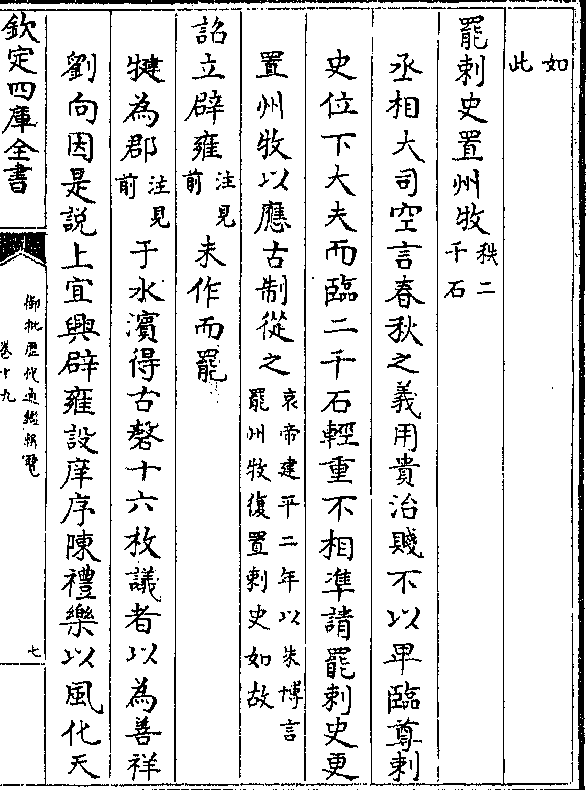 如此
罷刺史置州牧秩二千石
丞相大司空言春秋之義用貴治賤不以卑臨尊刺
史位下大夫而臨二千石輕重不相準請罷刺史更
置州牧以應古制從之哀帝建平二年以朱博言罷州牧復置刺史如故
詔立辟雍注見前未作而罷
犍為郡注見前于水濱得古磬十六枚議者以為善祥
劉向因是説上宜興辟雍設庠序陳禮樂以風化天
欽定四庫全書
御批歴代通鑑輯覽
卷十九
七